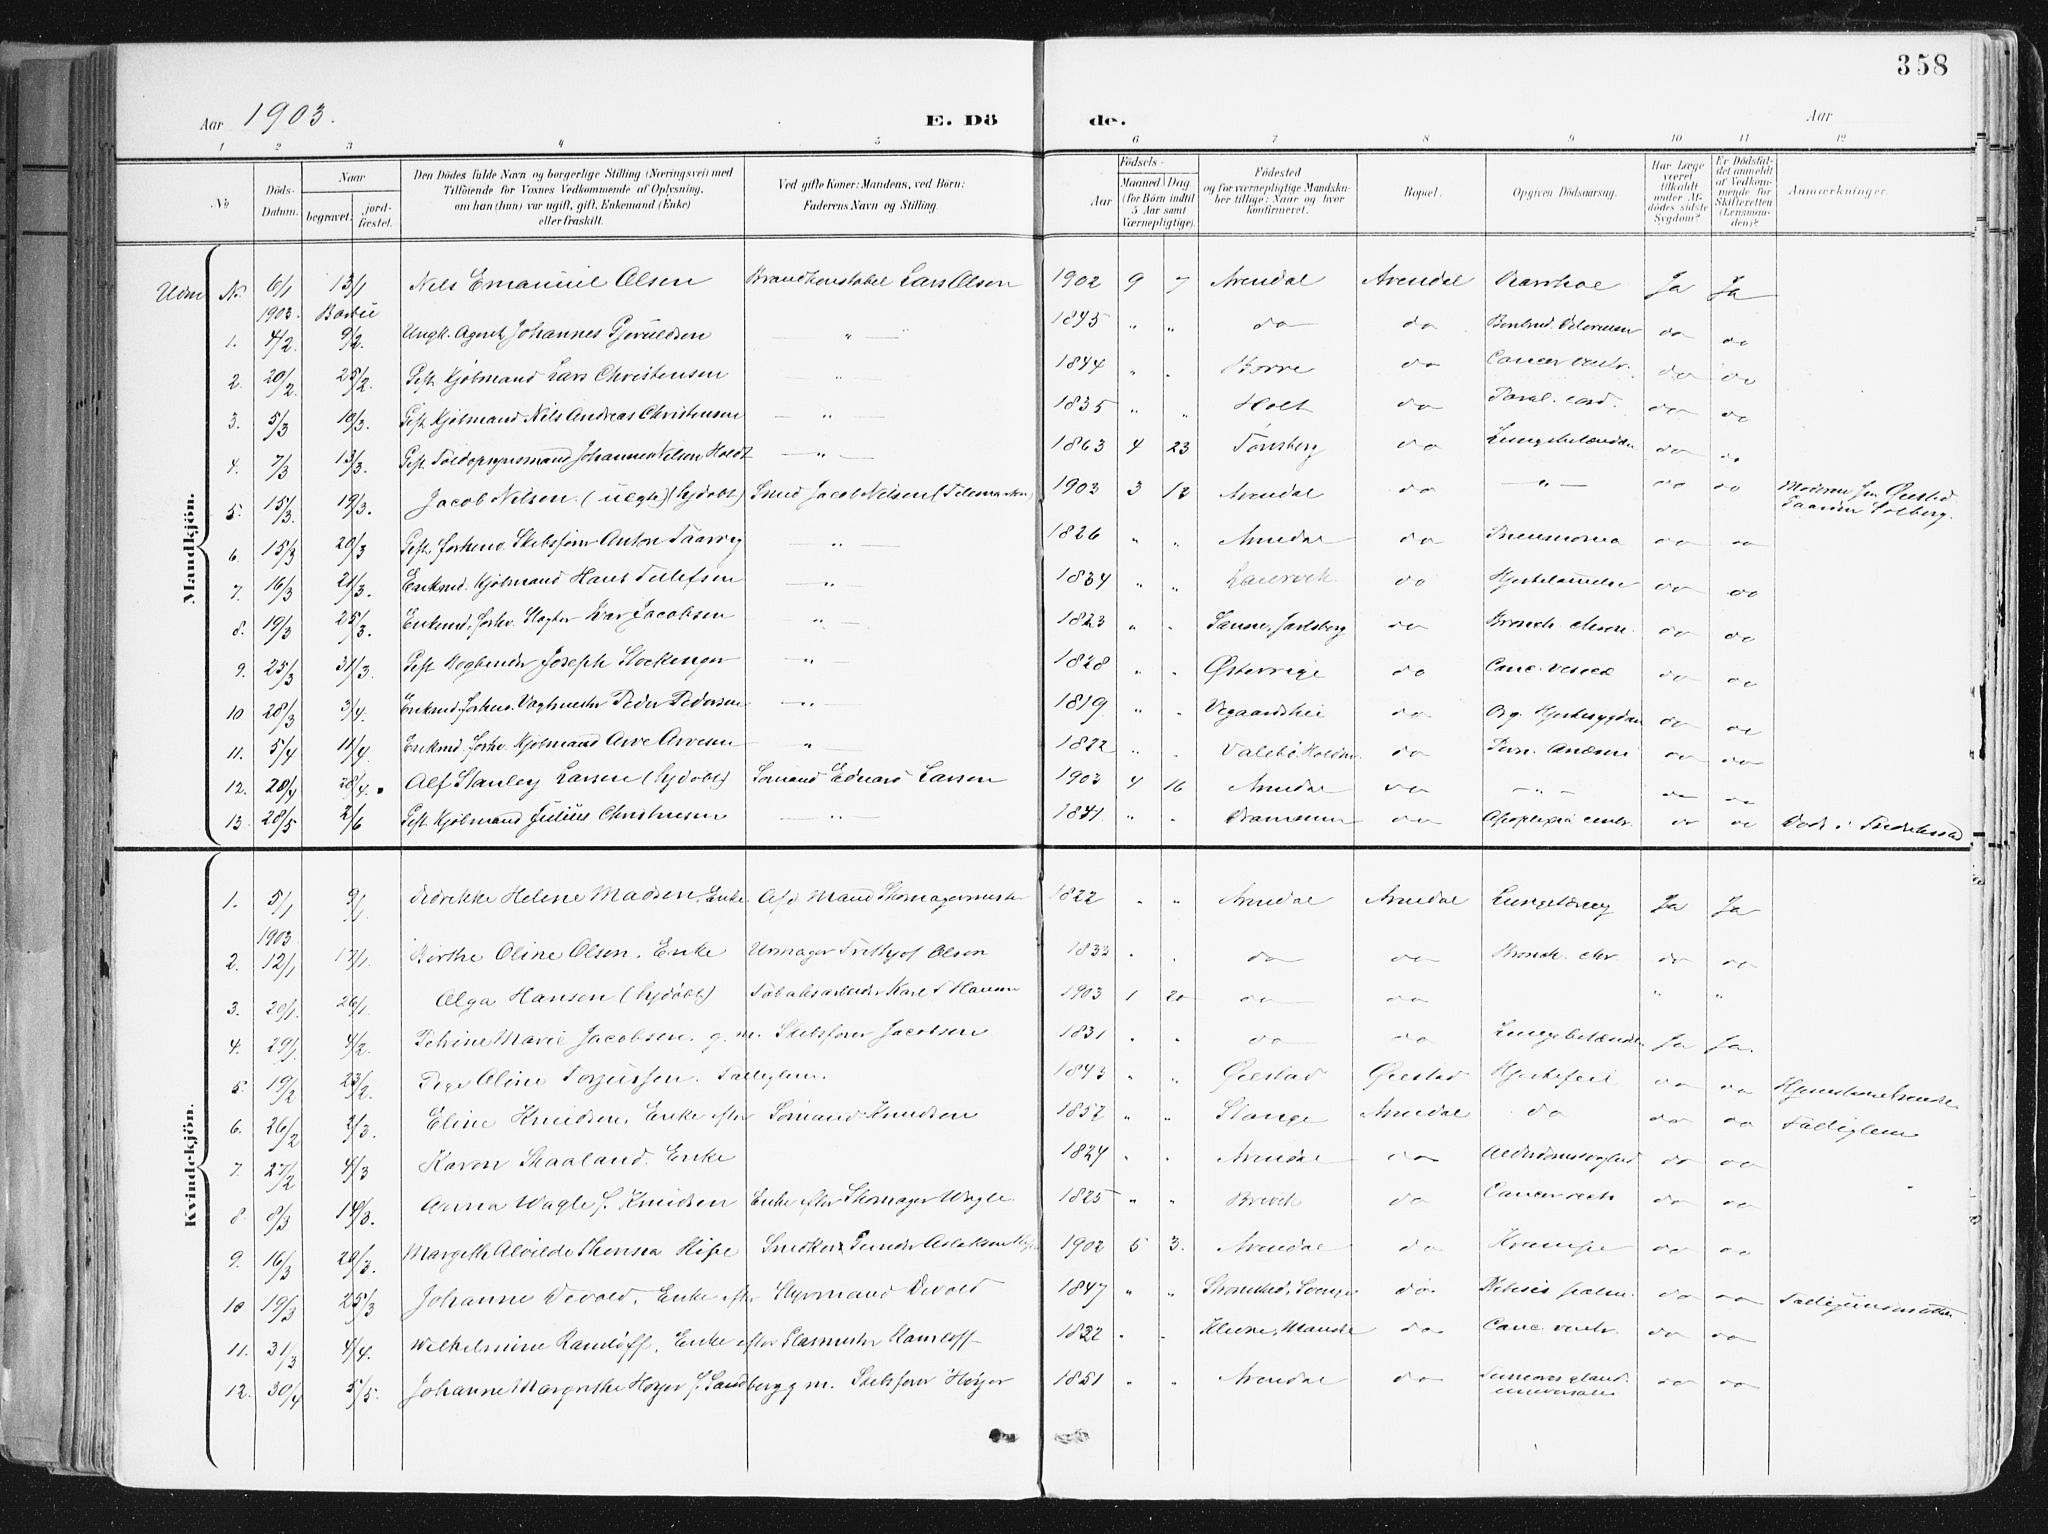 358
Aar 1903.
E. Dö de.
Aar
1 2 3 4 5 6 7 8 9 10 11 12
No
Döds-Datum.
Naar
begravet.
jord-fæstet.
Den Dödes fulde Navn og borgerlige Stilling (Næringsvei) med
Tilföiende for Voxnes Vedkommende af Oplysning,
om han (hun) var ugift, gift, Enkemand (Enke)
eller fraskilt.
Ved gifte Koner: Mandens, ved Börn:
Faderens Navn og Stilling.
Födsels-
Aar
Maaned Dag
(for Börn indtil
5 Aar samt
Værnepligtige).
Födested
og for værnepligtige Mandska-
ber tillige: Naar og hvor
konfirmeret.
Bopæl.
Opgiven Dödsaarsag.
Har Læge
været
tilkaldt
under Af-
dödes sidste
Sygdom?
Er Dödsfal-
det anmeldt
af Vedkom-
mende for
Skifteretten
(Lensman-
den)?
Anmærkninger.
Mandkjön.
No. 6/1 13/1 Nils Emanuel Olsen Brandkonstabel Lars Olsen 1902 9 7 Arendal Arendal Ja Ja
1903. Barbu
1. 4/2 9/2. Ungk. Agent Johannes Gjeruldsen — " — 1845 " " do do do do
2. 20/2 25/2. Gift Kjöbmand Lars Christensen " 1844 " " Borre do Cancer ventr. do do
3. 5/3 10/3. Gift Kjöbmand Nils Andreas Christensen — " — 1835 " " Holt do Paral. cord. do do
4. 7/3 13/3. Gift Toldopsynsmand Johannes Nilsen Holdt — " — 1863 4 23 Tönsberg do Lungebetændelse do do
5. 15/3 19/3. Jacob Nilsen (uægte) (hjdöbt) Smed Jacob Nilsen (Telemarken) 1903 3 12 Arendal do — " — do do Moderen fra Öiestad Solberg.
6. 15/3 20/3 Gift, forhenv. Skibsförer Anton Taarvig — " — 1826 " " Arendal do Pneumonia do do
7. 16/3 21/3. Enkemd. Kjöbmand Hans Tellefsen — " — 1834 " " Laurvik do Hjertelammelse do do
8. 19/3 25/3. Enkemd. forhv. Slagter Ivar Jacobsen " 1823 " " Sande, Jarlsberg do Bronch. chron. do do
9. 25/3 31/3. Gift Bogbinder Joseph Stockinger — " — 1828 " " Österrige do Canc. vesicæ do do
10 28/3 3/4. Enkemd. forhenv. Vagtmester Peder Pedersen — " — 1819 " " Vegaardshei do Org. Hjertesygdom do do
11. 5/4 11/4. Enkemd. forhv. Kjöbmand Arve Arvesen " 1822 " " Valebö, Holden do Pern. Anæmi do do
12. 20/4 28/4. Alf Stanley Larsen (hjdöbt) Sömand Edvard Larsen 1903 4 16 Arendal do — " — do do
13. 28/5 2/6 Gift Kjöbmand Julius Christensen — " — 1841 " " Drammen do Apoplexia cerebr. do do Död i Fredrikstad
Kvindekjön.
1. 5/1 9/1. Didrikke Helene Madsen. Enke Afd Mand Skomagermester 1822 " " Arendal Arendal Ja Ja
1903
2. 12/1 17/1. Börthe Oline Olsen, Enke Urmager Frithjof Olsen 1833 " " do do Bronch. chr. do do
3. 20/1. 26/1. Olga Hansen (hjdöbt) Tobaksarbeider Karl Hansen 1903 1 20 do do " "
4. 29/1 4/2. Petrine Marie Jacobsen. g. m. Skibsförer Jacobsen 1831 " " do do Lungebetændelse Ja Ja.
5. 19/2 23/2. Pige Aline Torjussen. Fattiglem. 1843 " " Öiestad Öiestad Hjertefeil do do
6. 26/2 2/3. Eline Knudsen, Enke efter Sömand Knudsen 1857 " " Stange Arendal do do do Fattiglem
7. 27/2 4/3 Karen Skaaland. Enke 1824 " " Arendal do Alderdomssvaghed do do
8. 8/3 14/3. Anna Wagle f. Knudsen Enke efter Skomager Wagle. 1825 " " Brevik do Cancer recti do do
9. 16/3 20/3. Margith Alvilde Thensa Snedker Gunder Aslaksen 1902 5 3. Arendal do Krampe do do
10 19/3 25/3 Johanne Devold, Enke efter Styrmand Devold 1847 " " Strömstad, Sverige do Phtisis pulm. do do
11. 31/3 4/4. Wilhelmine Ramlöff, Enke efter Glasmester Ramlöff 1822 " " Kleive, Mandal do Canc. ventr. do do
12. 30/4 5/5. Johanne Margrethe Höyer f. Sandberg g. m. Skibsförer Höyer 1851 " " Arendal do Tumores gland. universales do do